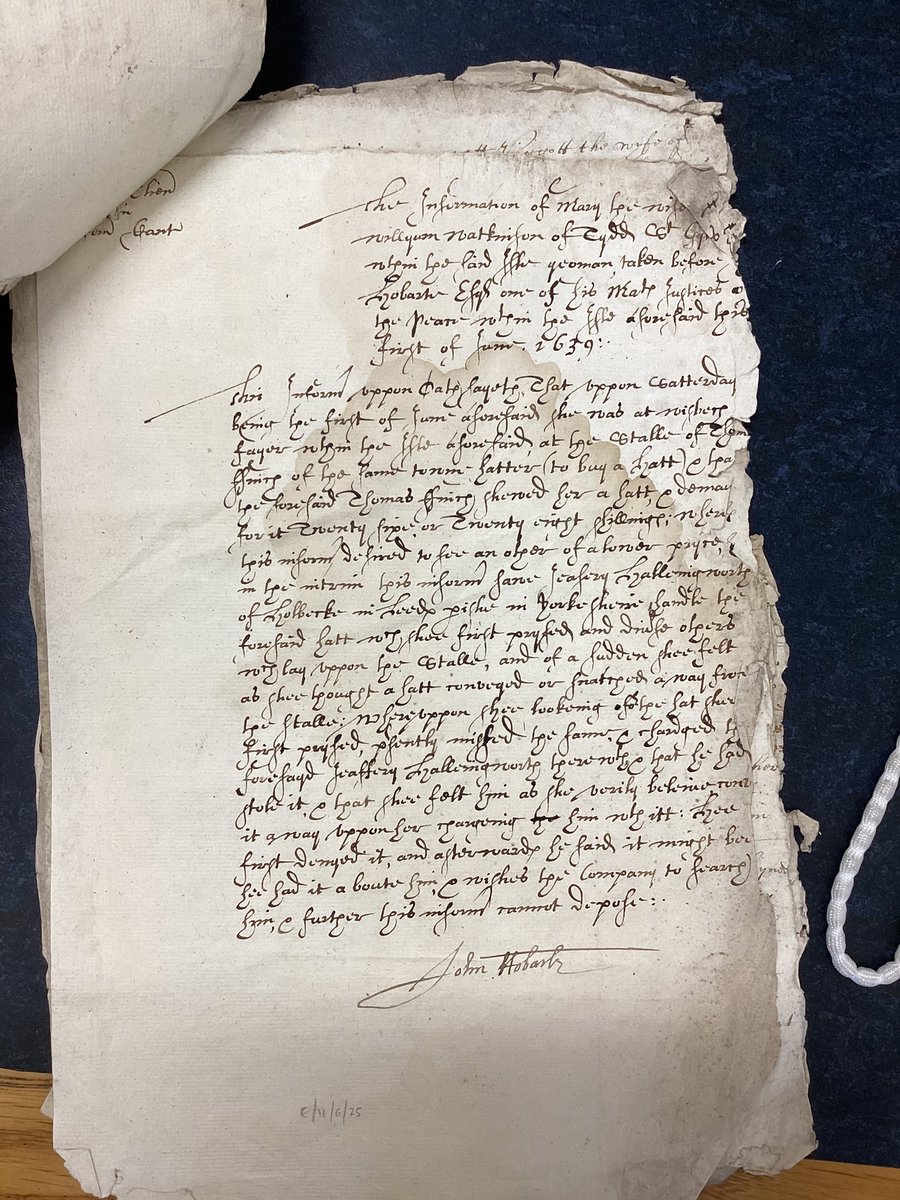 the wyfe of
The Information of Mary the wife
willyum watkinson of Tydd St
wthin the said Isle yeoman taken before
Hobarte Esqr one of his Maties Justices o
the Peace wthin the Isle aforesaid this
first of June, 1639:
This Inform uppon Oath sayeth, That uppon Satterday
being the first of June aforesaid she was at wisbech
fayer wthin the Isle aforesaid, at the Stalle of Thom
ffinch of the same towne hatter (to buy a hatt) & tha
the foresaid Thomas ffinch shewed her a hatt, & deman
for it Twenty sixe, or Twenty eight shillings; where
this inform desired to see an other of a lower pryce,
in the intrim this inform sawe Jeafery Hallingworth
of Holbecke in Leeds pishe in Yorkesheire handle the
foresaid hatt wch shee first prysed and divse others
wch lay uppon the Stalle, and of a sudden shee felt
as shee thought a hatt conveyed or snatched away from
the stalle: Whereuppon shee lookeing for the hat shee
first prysed, psently missed the same, & chardged th
foresayd Jeaffery Hallingworth therewth & that he had
stole it, & that shee felt him as she verily beleive conv
it away uppon her chargeing him wth itt: Hee
first denyed it, and afterwards he said it might bee
hee had it a boute him, & wishes the Company to search
him, & further this inform cannot depose:
John Hobarte
E/11/6/25